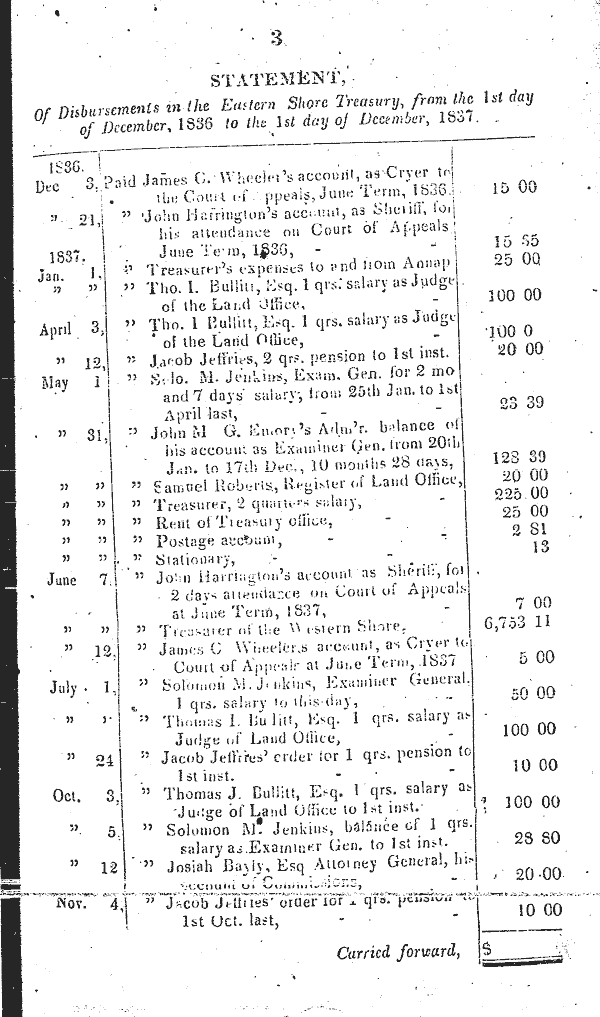 3
STATEMENT,
Of Disbursements in the Eastern Shore Treasury, from the 1st day
of December, 1836 to the 1st day of December, 1837.
1836.
Dec 3, Paid James C. Wheeler's account, as Cryer to
the Court of Appeals, June Term, 1836. 15 00
" 21, " John Harrington's account, as Sheriff, for
his attendance on Court of Appeals
June Term, 1836, - - 15
1837.
Jan. 1, " Treasurer's expenses to and from Annap 25 00
" " " Tho. I. Bullitt, Esq. 1 qrs. salary as Judge
of the Land Office, - - 100 00
April 3, " Tho. I Bullitt, Esq. 1 qrs. salary as Judge
of the Land Office, - - 100 0
" 12, " Jacob Jeffries, 2 qrs. pension to 1st inst. 20 00
May 1 " Solo. M. Jenkins, Exam. Gen. for 2 mo
and 7 days' salary, from 25th Jan. to 1st
April last, - - 23 39
" 31, " John M G. Emory's Adm'r. balance of
his account as Examiner Gen. from 20th
Jan. to 17th Dec., 10 months 28 days, 128 39
" " " Samuel Roberts, Register of Land Office, 20 00
" " " Treasurer, 2 quarters salary, - 225 00
" " " Rent of Treasury office, - - 25 00
" " " Postage account, - - 2 81
" " " Stationary, - - 13
June 7, " John Harrington's account as Sheriff, for
2 days attendance on Court of Appeals
at June Term, 1837, - 7 00
" " " Treasurer of the Western Shore, 6,753 11
" 12, " James C Wheeler,s account, as Cryer to
Court of Appeals at June Term, 1837 5 00
July 1, " Solomon M. Jenkins, Examiner General.
1 qrs. salary to this day, - 50 00
" " " Thomas I. Bullitt, Esq. 1 qrs. salary as
Judge of Land Office, - - 100 00
" 24 " Jacob Jeffries' order for 1 qrs. pension to
1st inst. - - 10 00
Oct. 3, " Thomas J. Bullitt, Esq. 1 qrs. salary as
Judge of Land Office to 1st inst. 100 00
" 5, " Solomon M. Jenkins, balance of 1 qrs.
salary as Examiner Gen. to 1st inst. 28 80
" 12 " Josiah Bayly, Esq Attorney General, his
account of Commissions, 20 00
Nov. 4, " Jacob Jeffries' order for 1 qrs. pension to
1st Oct. last, - - 10 00
Carried forward, $